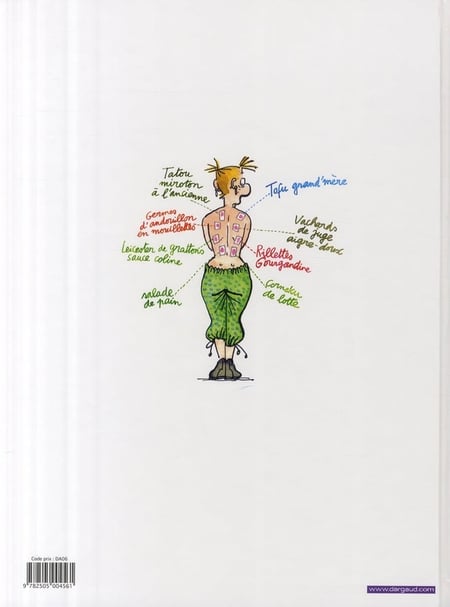 Tatou
miroton
à l'ancienne
Tofu grand'mère
Germes
d'andouillon
en mouillettes
Vacherds
de juge
aigre-doux
Leicester de grattons
sauce coline
Rillettes
Gourgandine
salade
de pain
Cornetu
de lotte
Code prix : DA06
9 782505 004561
www.dargaud.com